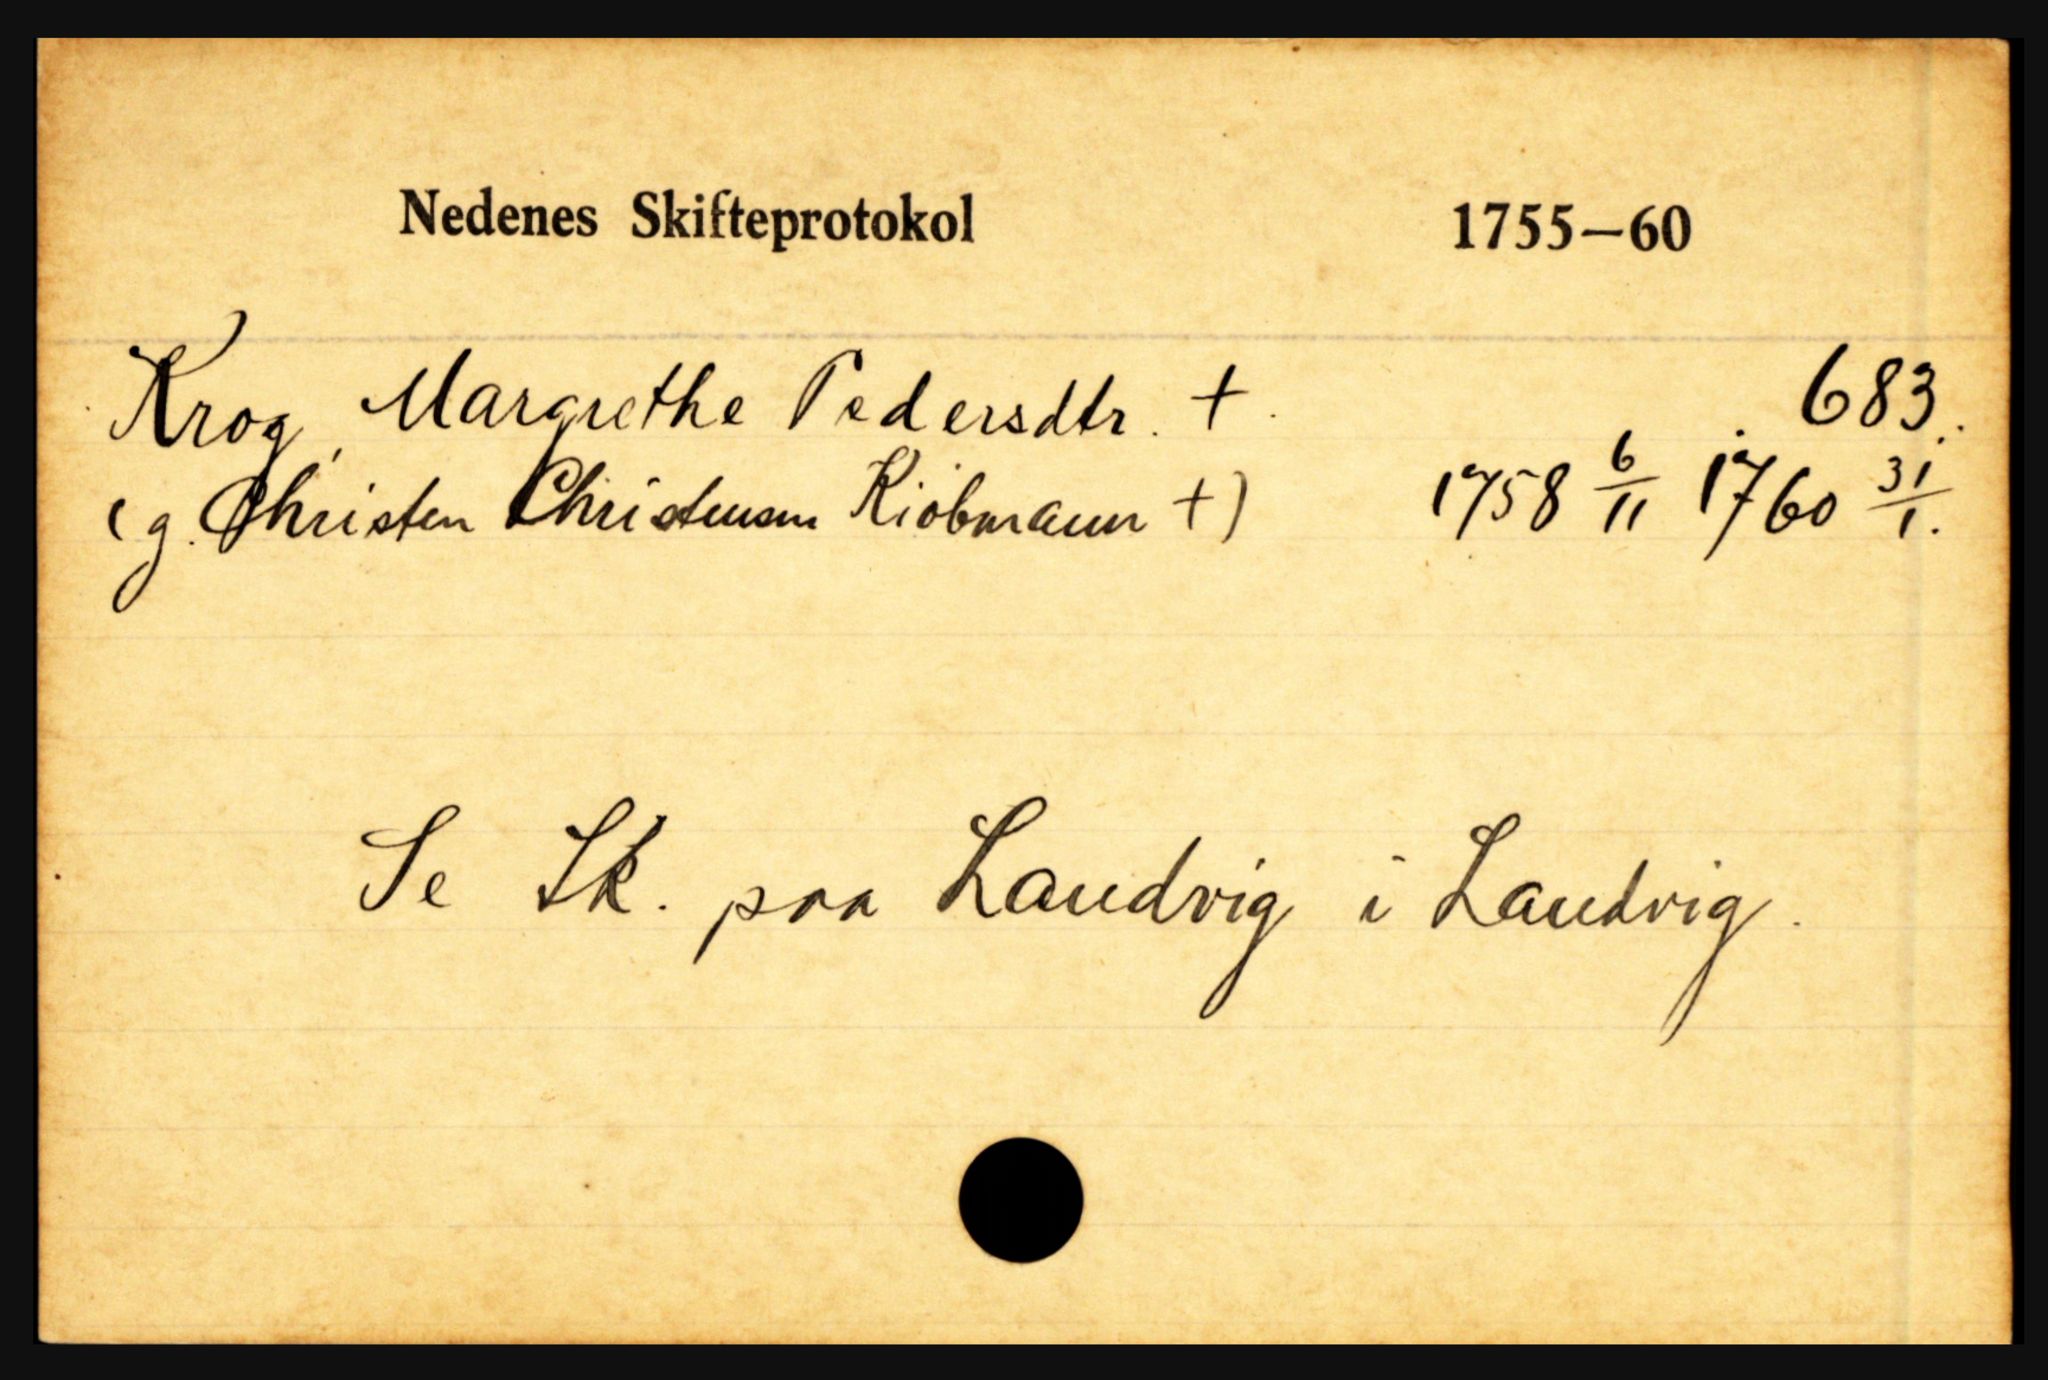 Nedenes Skifteprotokol 1755—60
Krog, Margrethe Pedersdtr. † 683.
(g. Christen Christensen Kiöbmann †) 1758 6/11 1760 31/1.
Se Sk. paa Landvig i Landvig.